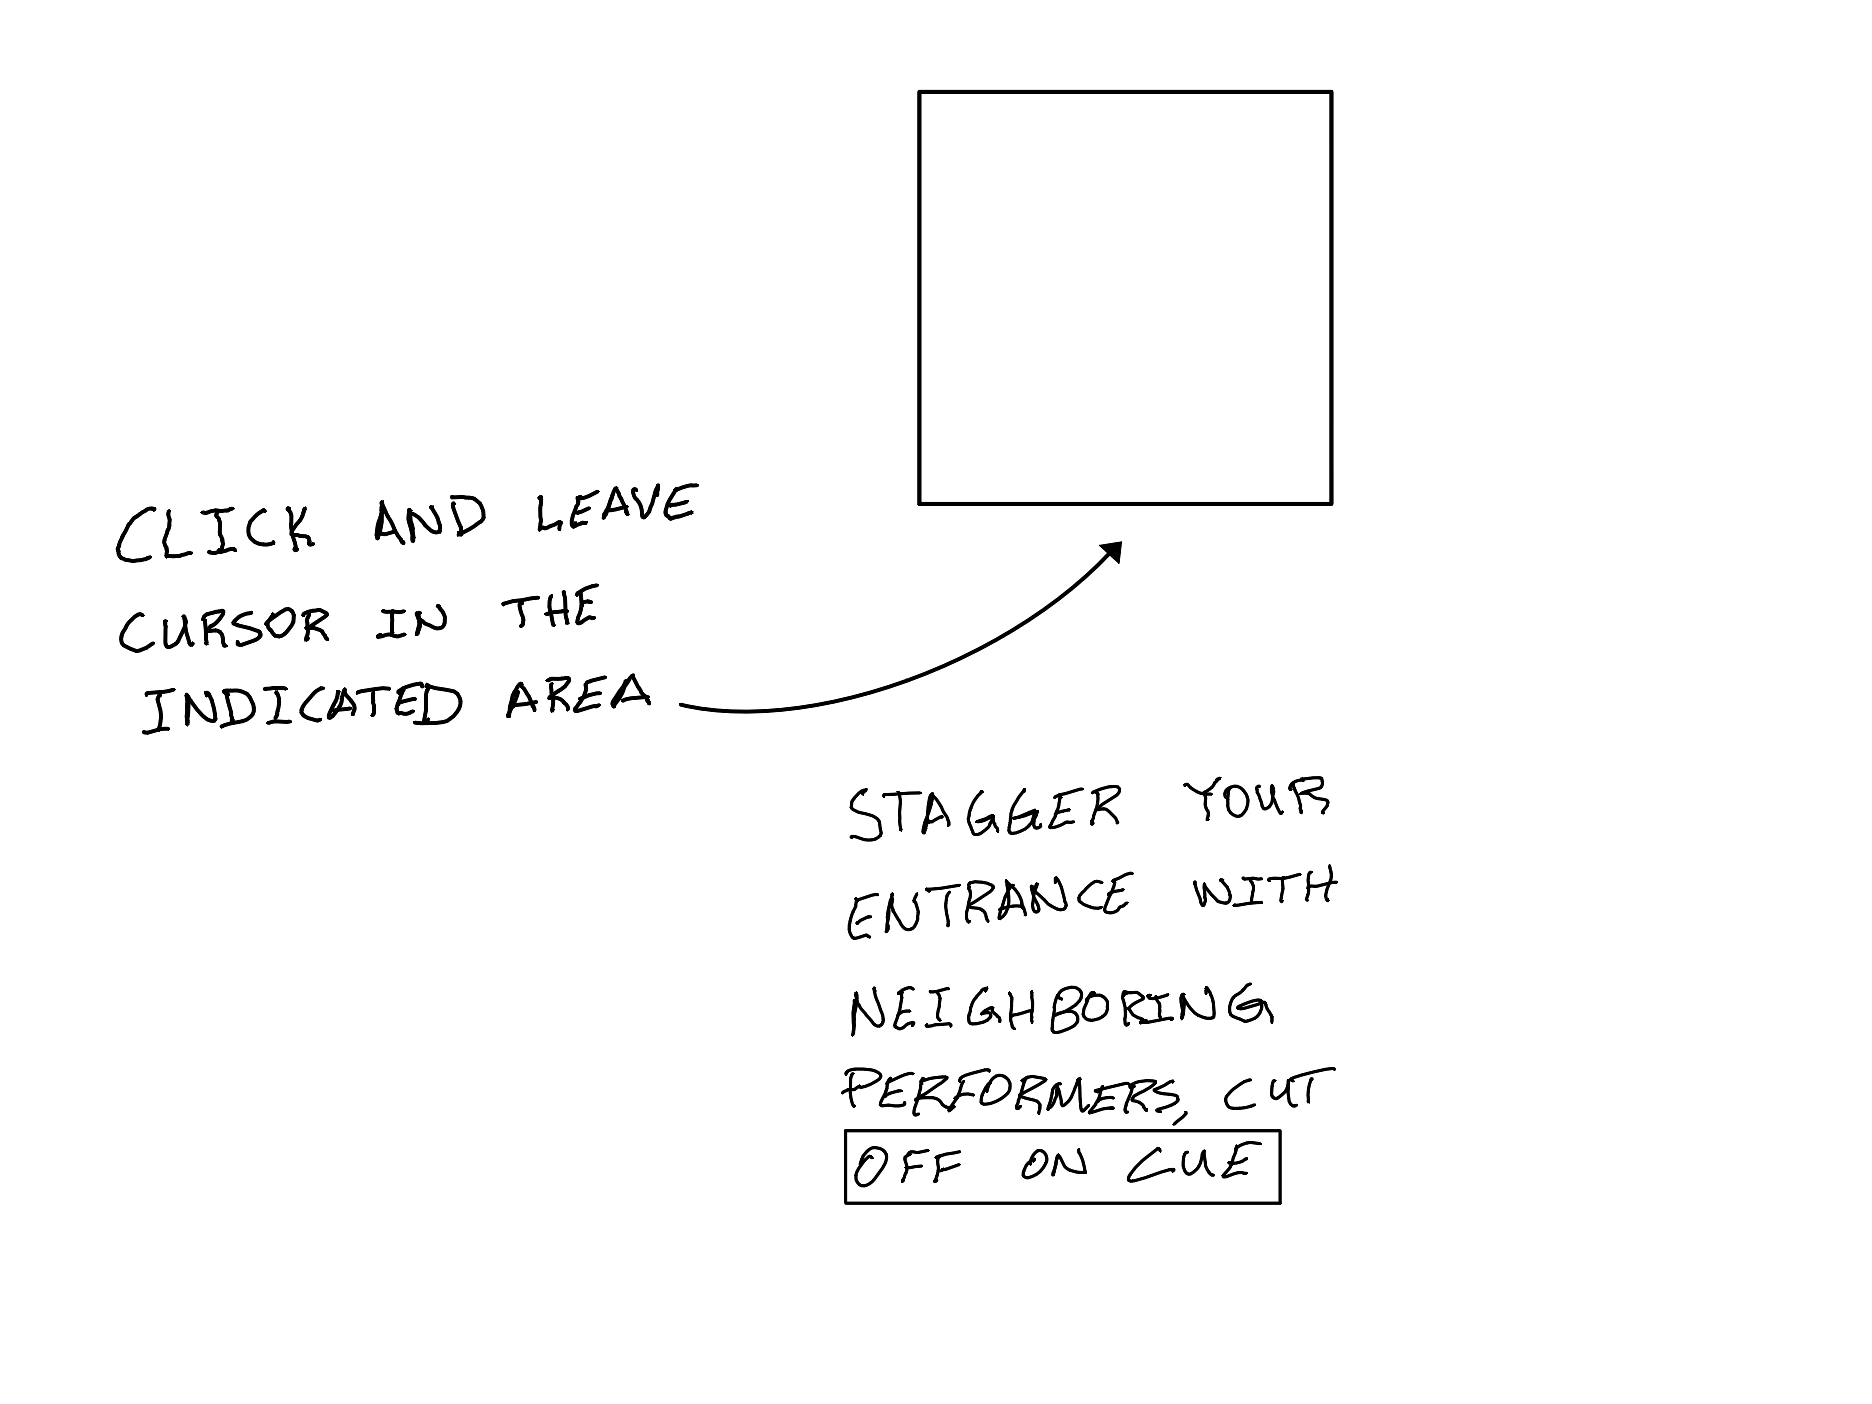 CLICK AND LEAVE
CURSOR IN THE
INDICATED AREA
STAGGER YOUR
ENTRANCE WITH
NEIGHBORING
PERFORMERS, CUT
OFF ON CUE